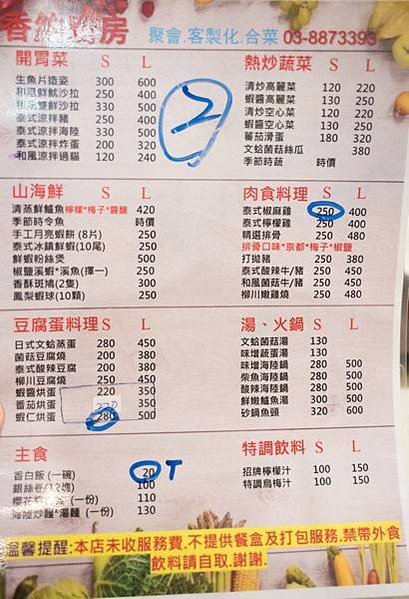 香 房 聚會.客製化.合菜 03-8873393
開胃菜 S L
生魚片造姿 300 600
和風鮮魷沙拉 250 400
和 雙鮮沙拉 330 500
泰式涼拌豬 250 400
泰式涼拌海陸 330 500
泰式涼拌炸蛋 200 320
和風涼拌過貓 120 240
2
熱炒蔬菜 S L
清炒高麗菜 120 220
蝦醬高麗菜 130 250
清炒空心菜 120 220
蝦醬空心菜 130 250
蕃茄滑蛋 180 320
文蛤菌菇絲瓜 380
季節時蔬 時價
山海鮮 S L
清蒸鮮鱸魚檸檬*梅子*醬釀 420
季節時令魚 時價
手工月亮蝦餅 (8片) 250
泰式冰鎮鮮蝦(10尾) 250
鮮蝦粉絲煲 500
椒鹽溪蝦*溪魚(擇一) 250
香酥斑鳩(2隻) 300
鳳梨蝦球(10顆) 250
肉食料理 S L
泰式椒麻雞 250 400
泰式檸檬雞 250 400
精選排骨 250 480
排骨口味*京都*梅子*椒鹽
打拋豬 250 380
泰式酸辣牛/豬 250 450
和風菌菇牛/豬 250 450
柳川嫩雞燒 250 480
豆腐蛋料理 S L
日式文蛤蒸蛋 280 450
菌菇豆腐燒 200 380
泰式酸辣豆腐 200 380
柳川豆腐燒 250 450
蝦醬烘蛋 220 350
番茄烘蛋 350
蝦仁烘蛋 280 500
湯、火鍋 S L
文蛤菌菇湯 130
味增蔬蛋湯 130
味增海陸鍋 280 500
柴魚海陸鍋 280 500
酸辣海陸鍋 280 500
鮮嫩鱸魚湯 300 500
砂鍋魚頭 320 600
主食
香白飯 (一碗) 20 T
銀絲卷(12塊) 100
櫻花 (一份) 110
海陸炒麵*湯麵 (一份) 130
特調飲料 S L
招牌檸檬汁 100 150
特調烏梅汁 100 150
溫馨提醒:本店未收服務費.不提供餐盒及打包服務.禁帶外食
飲料請自取.謝謝.